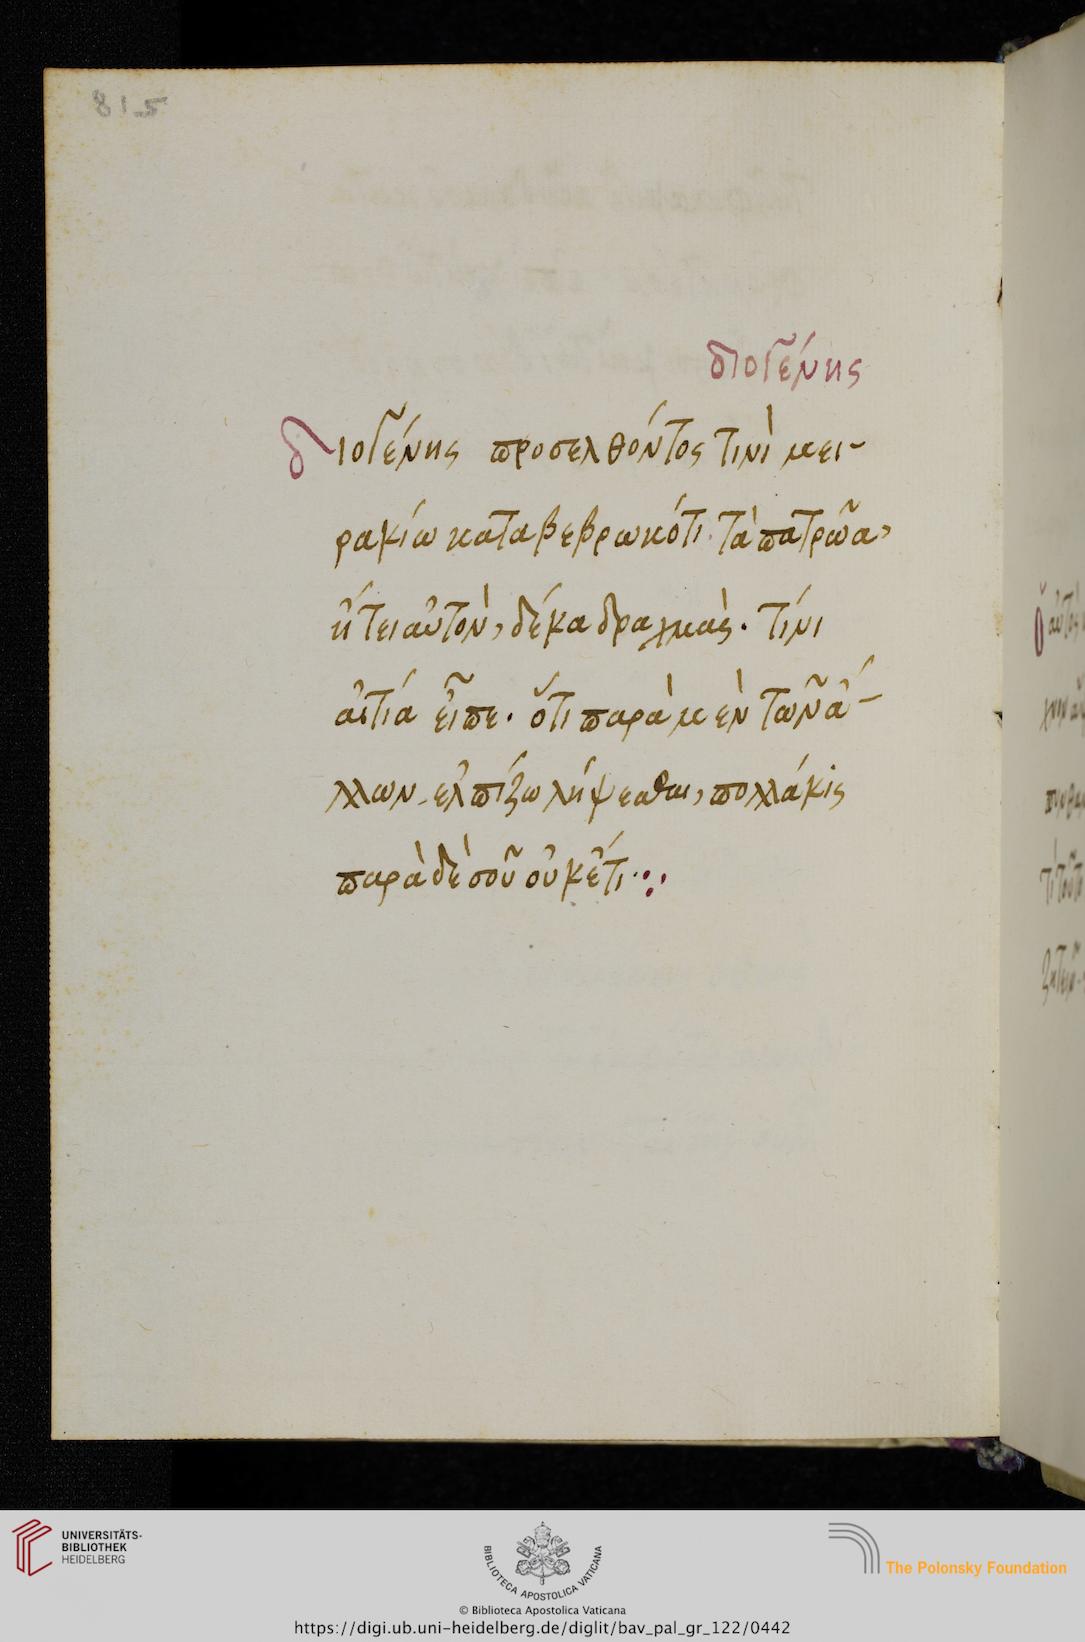 815
διογένης
διογένης προσελθόντος τινὶ μει-
ρακίω καταβεβρωκότι τὰ πατρῶα,
ἤτει αὐτὸν, δέκα δραχμὰς. τίνι
αἰτία εἶπε. ὅτι παρὰ μὲν τῶν ἄ-
λλων ελπίζω λήψεσθαι, πολλάκις
παρὰ δὲ σοῦ οὐκέτι
UNIVERSITÄTS-
BIBLIOTHEK
HEIDELBERG
BIBLIOTECA APOSTOLICA VATICANA
The Polonsky Foundation
© Biblioteca Apostolica Vaticana
https://digi.ub.uni-heidelberg.de/diglit/bav_pal_gr_122/0442